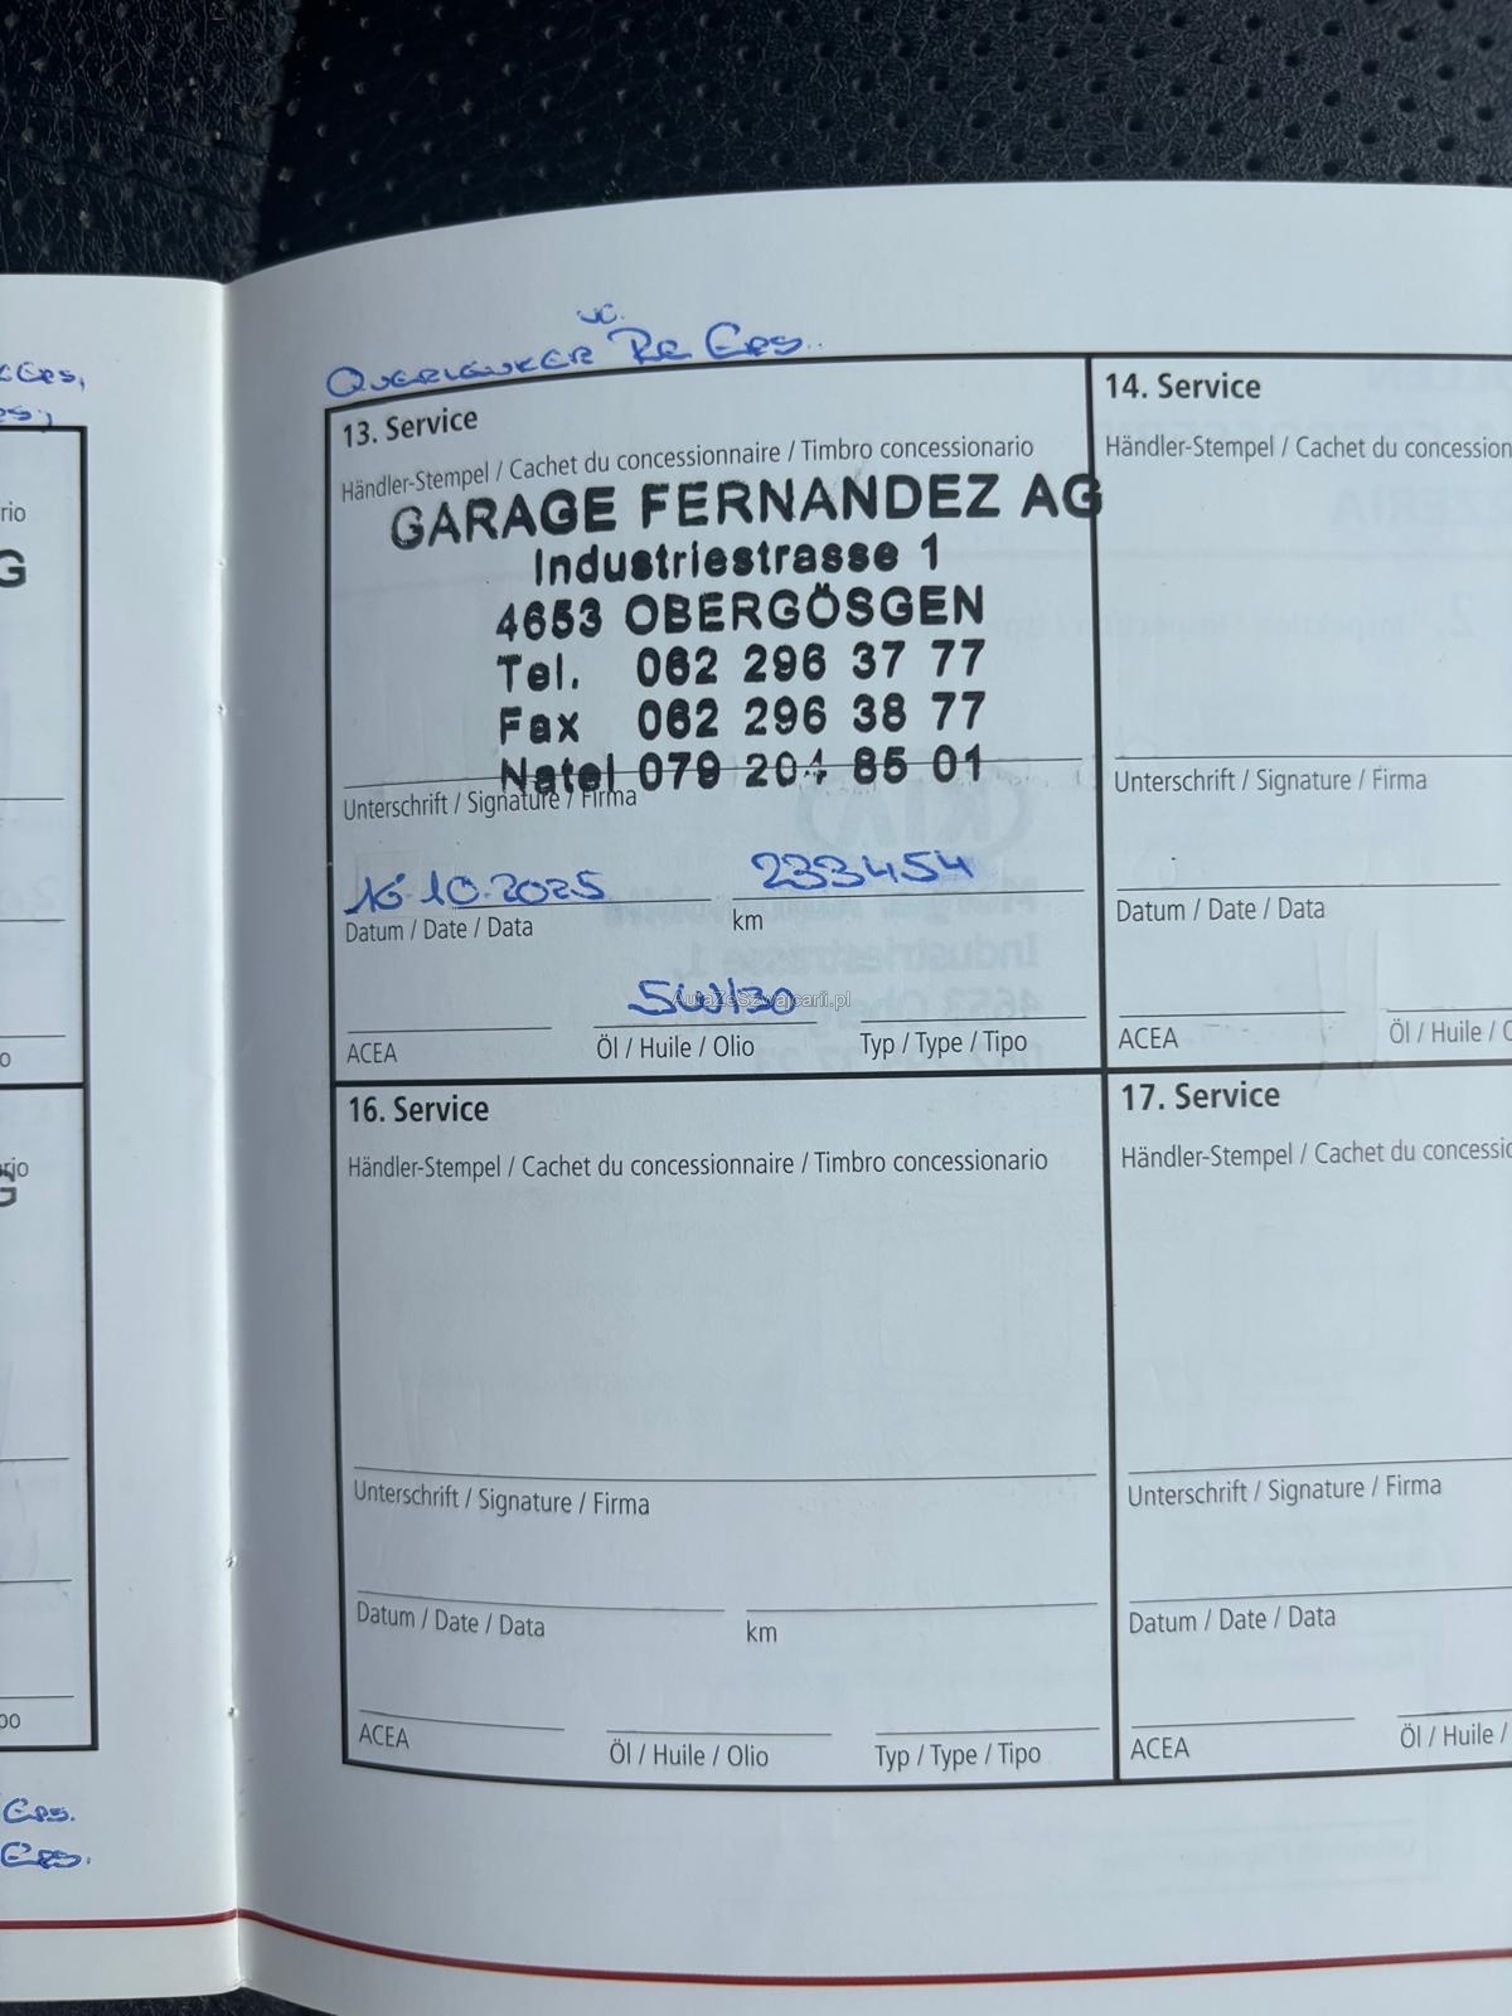 Querlenker vc. Re Ers.
13. Service
Händler-Stempel / Cachet du concessionnaire / Timbro concessionario
GARAGE FERNANDEZ AG
Industriestrasse 1
4653 OBERGÖSGEN
Tel. 062 296 37 77
Fax 062 296 38 77
Natel 079 204 85 01
Unterschrift / Signature / Firma
16.10.2025 233454
Datum / Date / Data km
5W/30
AutaZeSzwajcarii.pl
ACEA Öl / Huile / Olio Typ / Type / Tipo
14. Service
Händler-Stempel / Cachet du concession
Unterschrift / Signature / Firma
Datum / Date / Data
ACEA Öl / Huile /
16. Service
Händler-Stempel / Cachet du concessionnaire / Timbro concessionario
Unterschrift / Signature / Firma
Datum / Date / Data km
ACEA Öl / Huile / Olio Typ / Type / Tipo
17. Service
Händler-Stempel / Cachet du concessio
Unterschrift / Signature / Firma
Datum / Date / Data
ACEA Öl / Huile /
rio
G
Ers.
Ers.